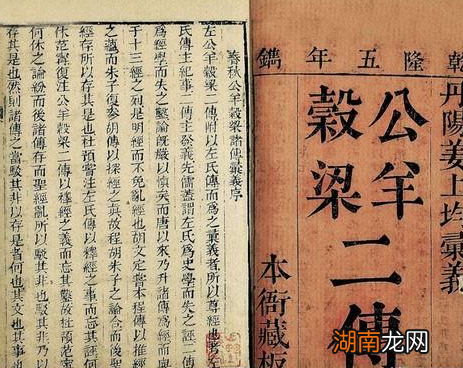 乾隆五年鐫
丹陽姜上均彙義
公羊
穀梁
二傳
本衙藏板
春秋公羊穀梁諸傳彙義序
左公羊穀梁二傳附以左氏傳而為之彙義者所以尊經也考左
氏傳主紀事二傳主發義先儒蓋謂左氏為史學而失之誣二傳
為經學而失之鑿論旣嚴以慎矣而唐以來乃升諸傳為經而列
于十三經之列是明經而不免亂經也胡文定嘗本程傳以推經
之蘊而朱子復參胡傳以探經之真故程胡朱子之論合而後聖
經存所以存其是也杜預嘗注左氏傳以釋經之事而忘其誣何
休范甯復注公羊穀梁二傳以釋經之義而忘其鑿故杜預范甯
何休之論紛而後諸傳存而聖經亂所以駁其非也駁其非乃以
存其是也然則諸傳之當駁其非以存是者何也其文
湖南龙网